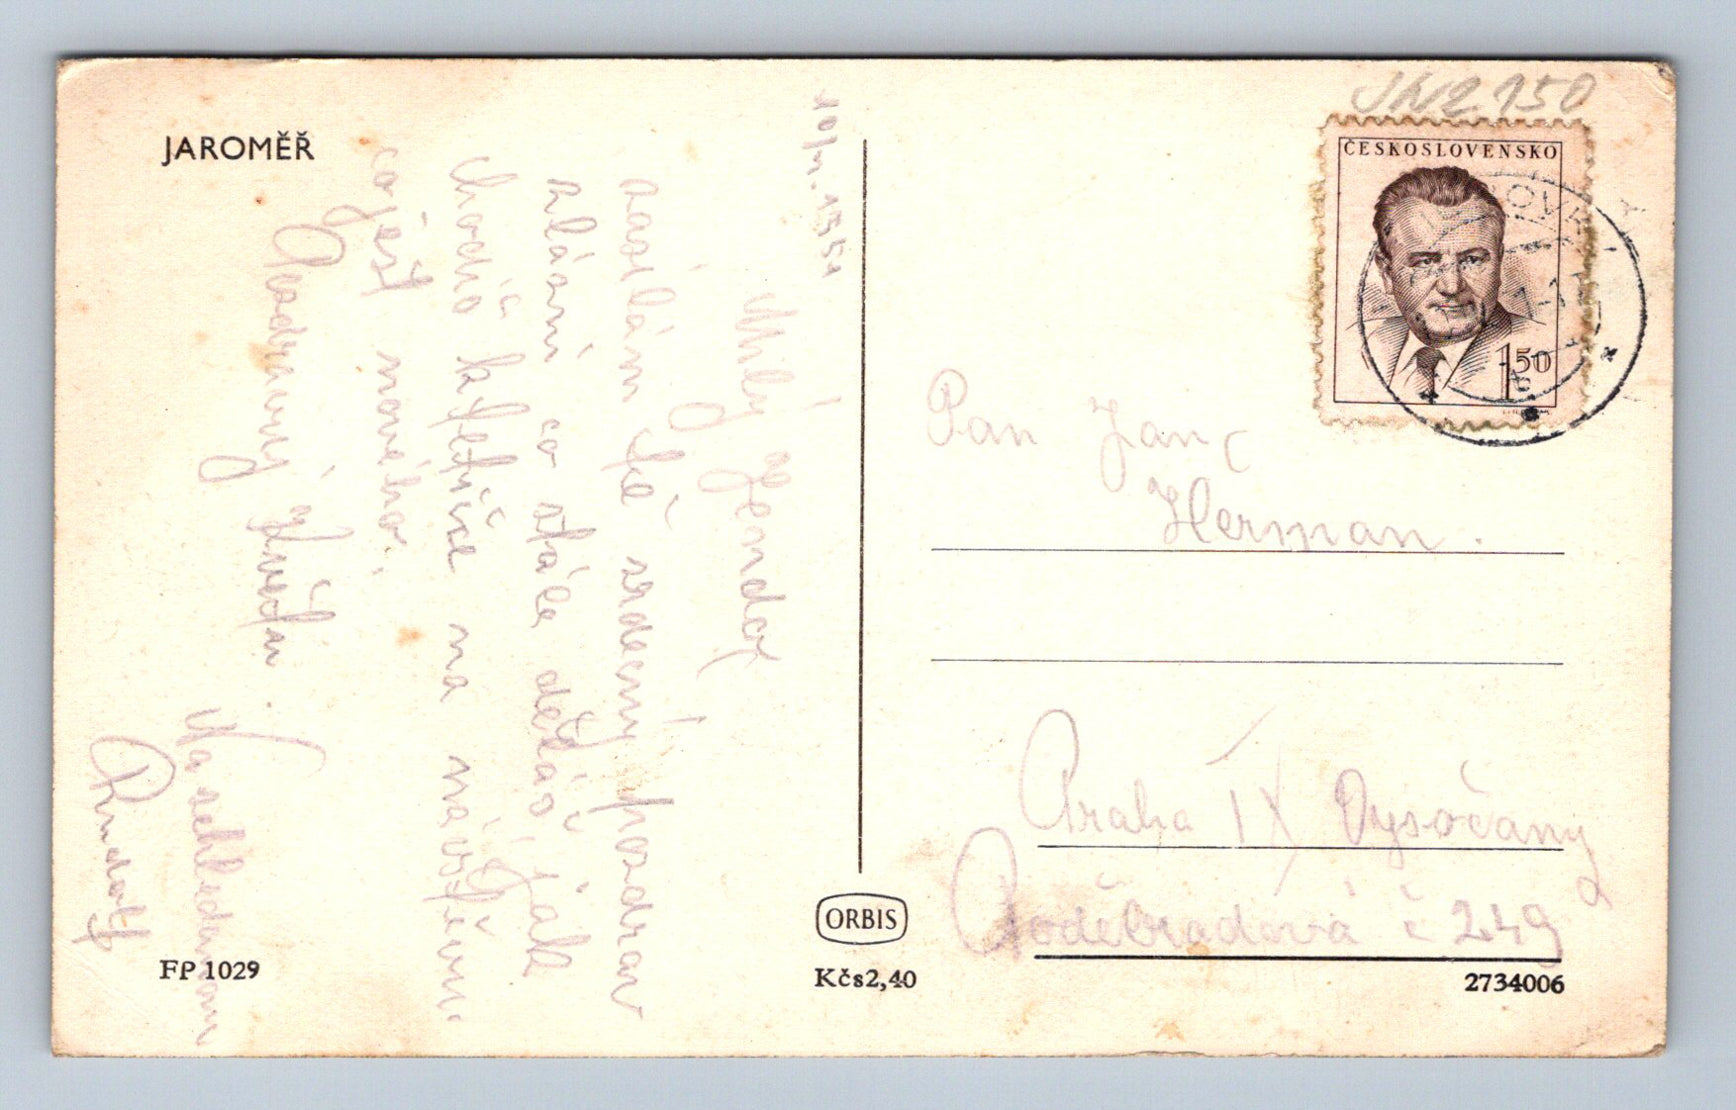 JAROMĚŘ
Milý Jendo,
zasílám tě srdečný pozdrav
zvlásní co stále děláš, jak
chodíš k Jetřise na návštěvu
co ješť nového.
Pozdravuj Květu.
Na schledanou
Rudolf
FP 1029
ORBIS
Kčs2,40
ČESKOSLOVENSKO
1,50
Pan Jan
Herman.
Praha IX Vysočany
Poděbradová č 249
2734006